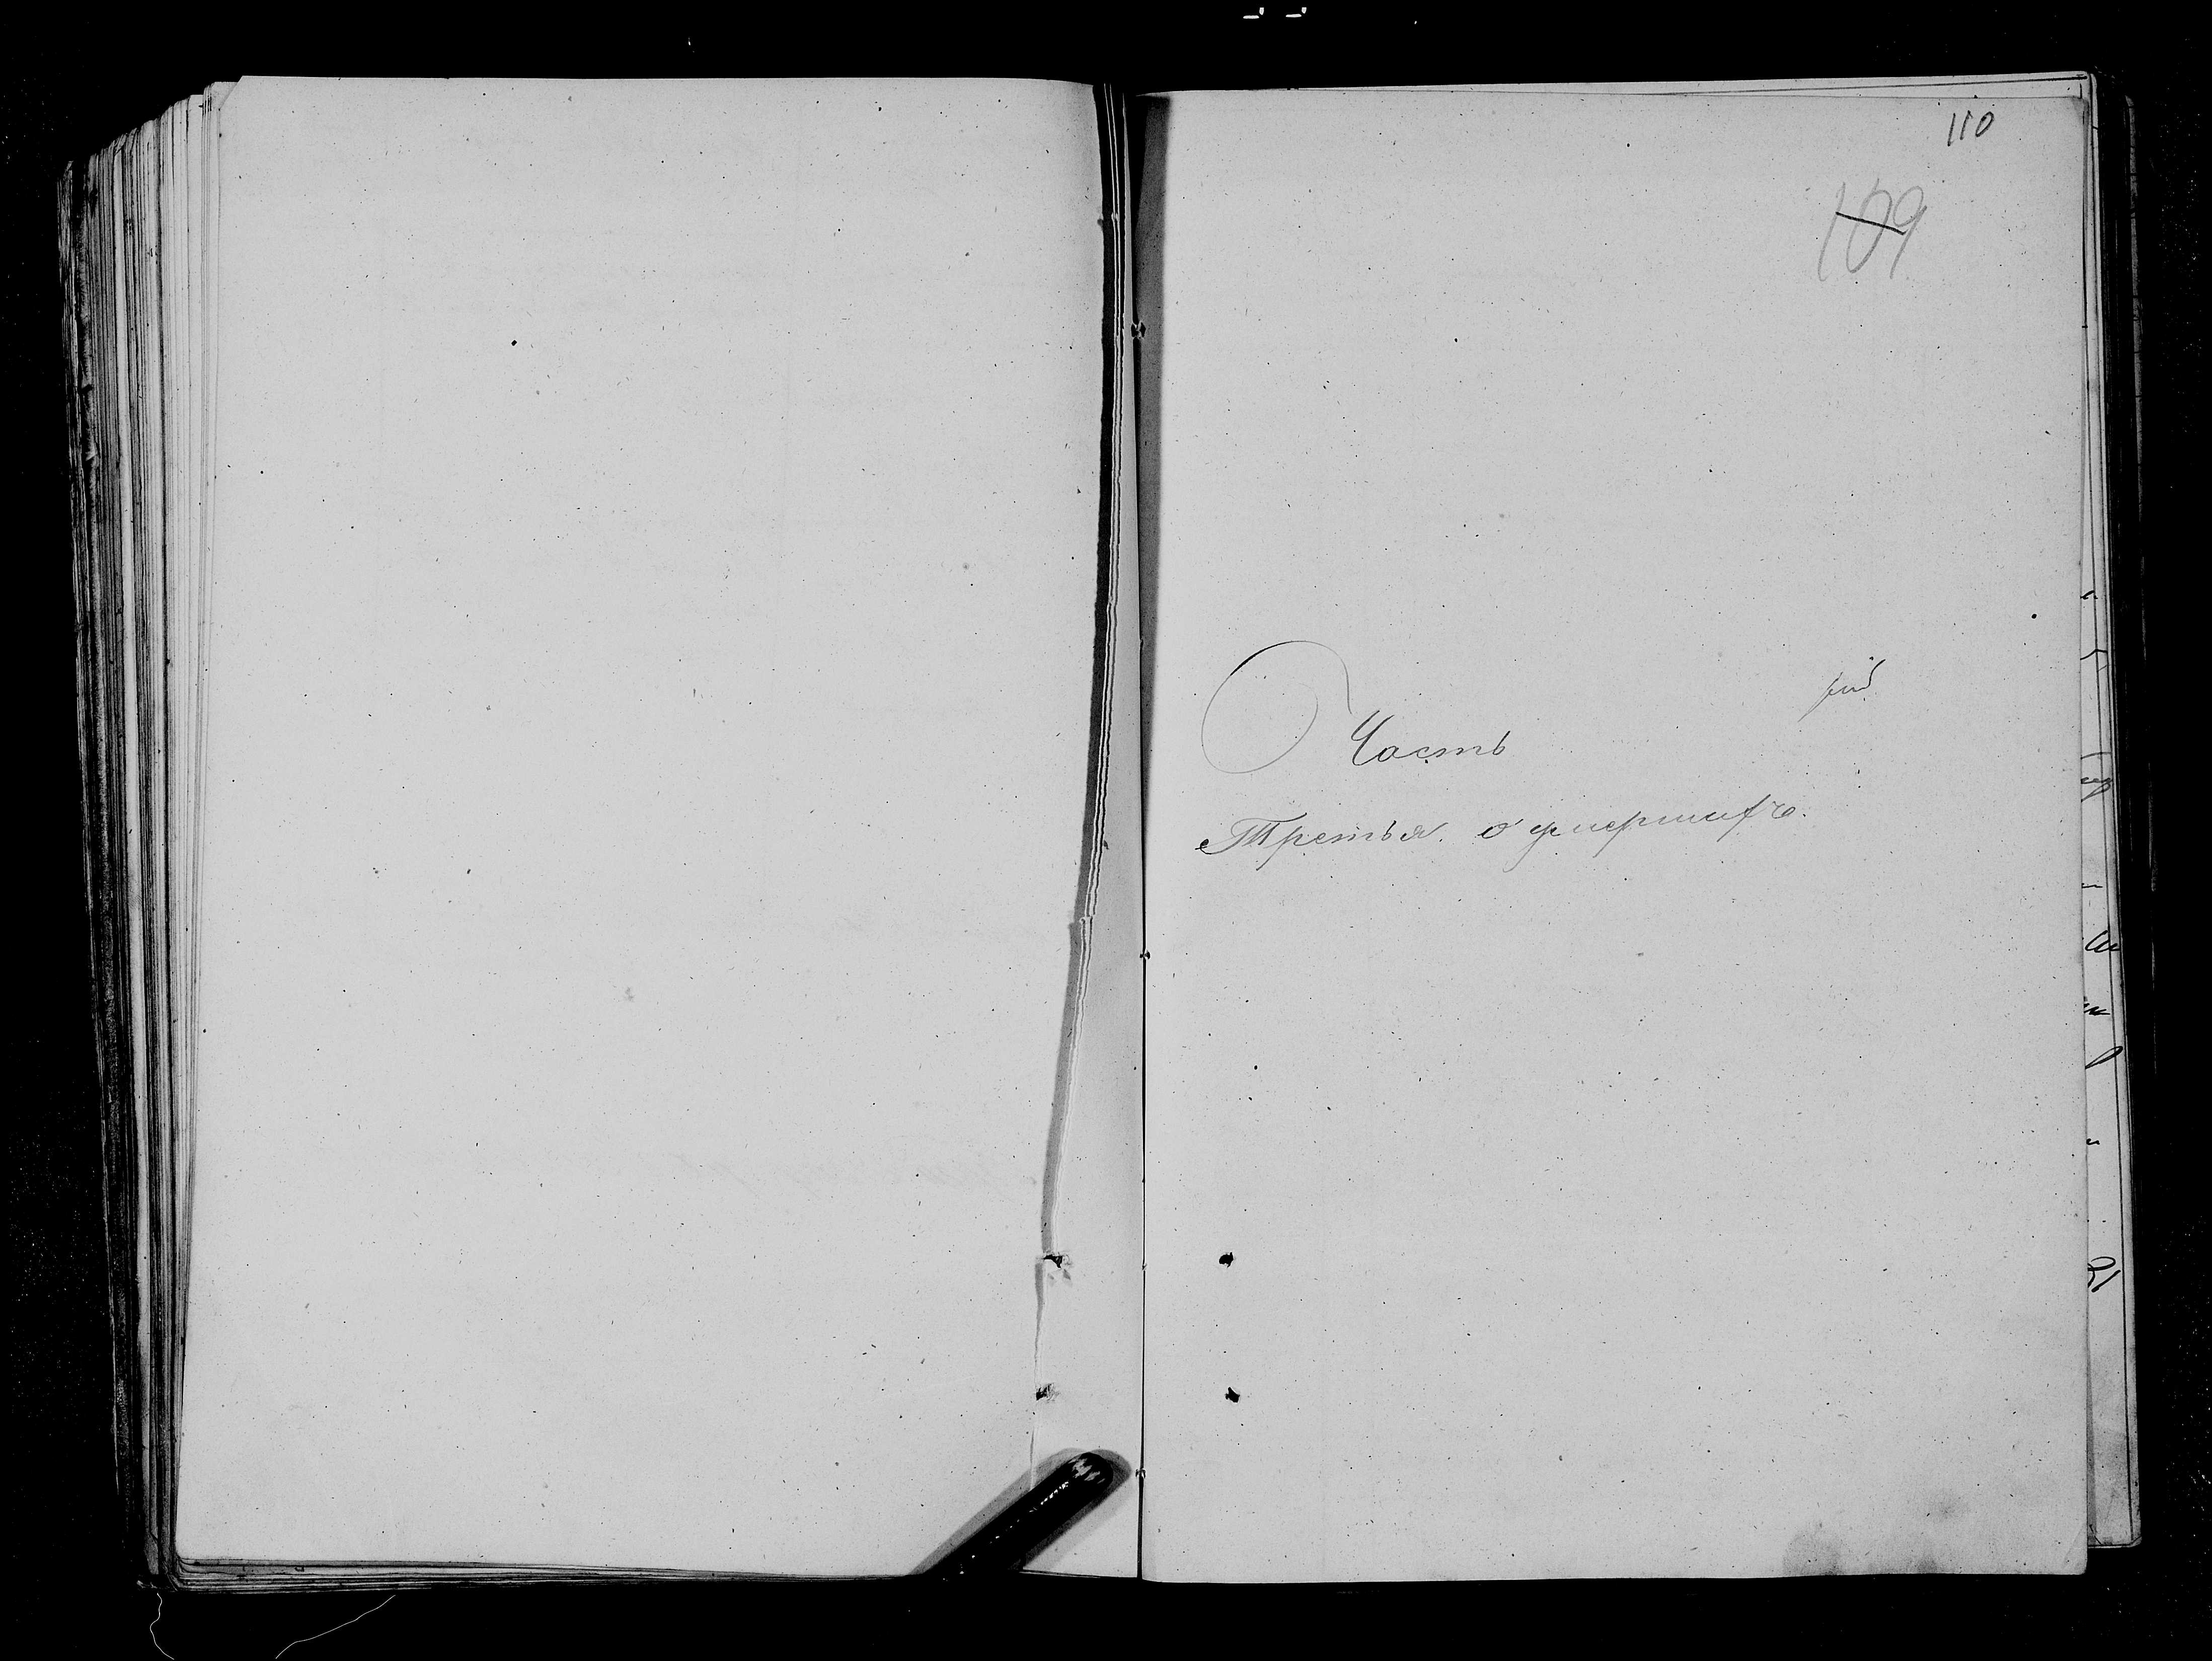 110
109
Часть
Третья о умерших.